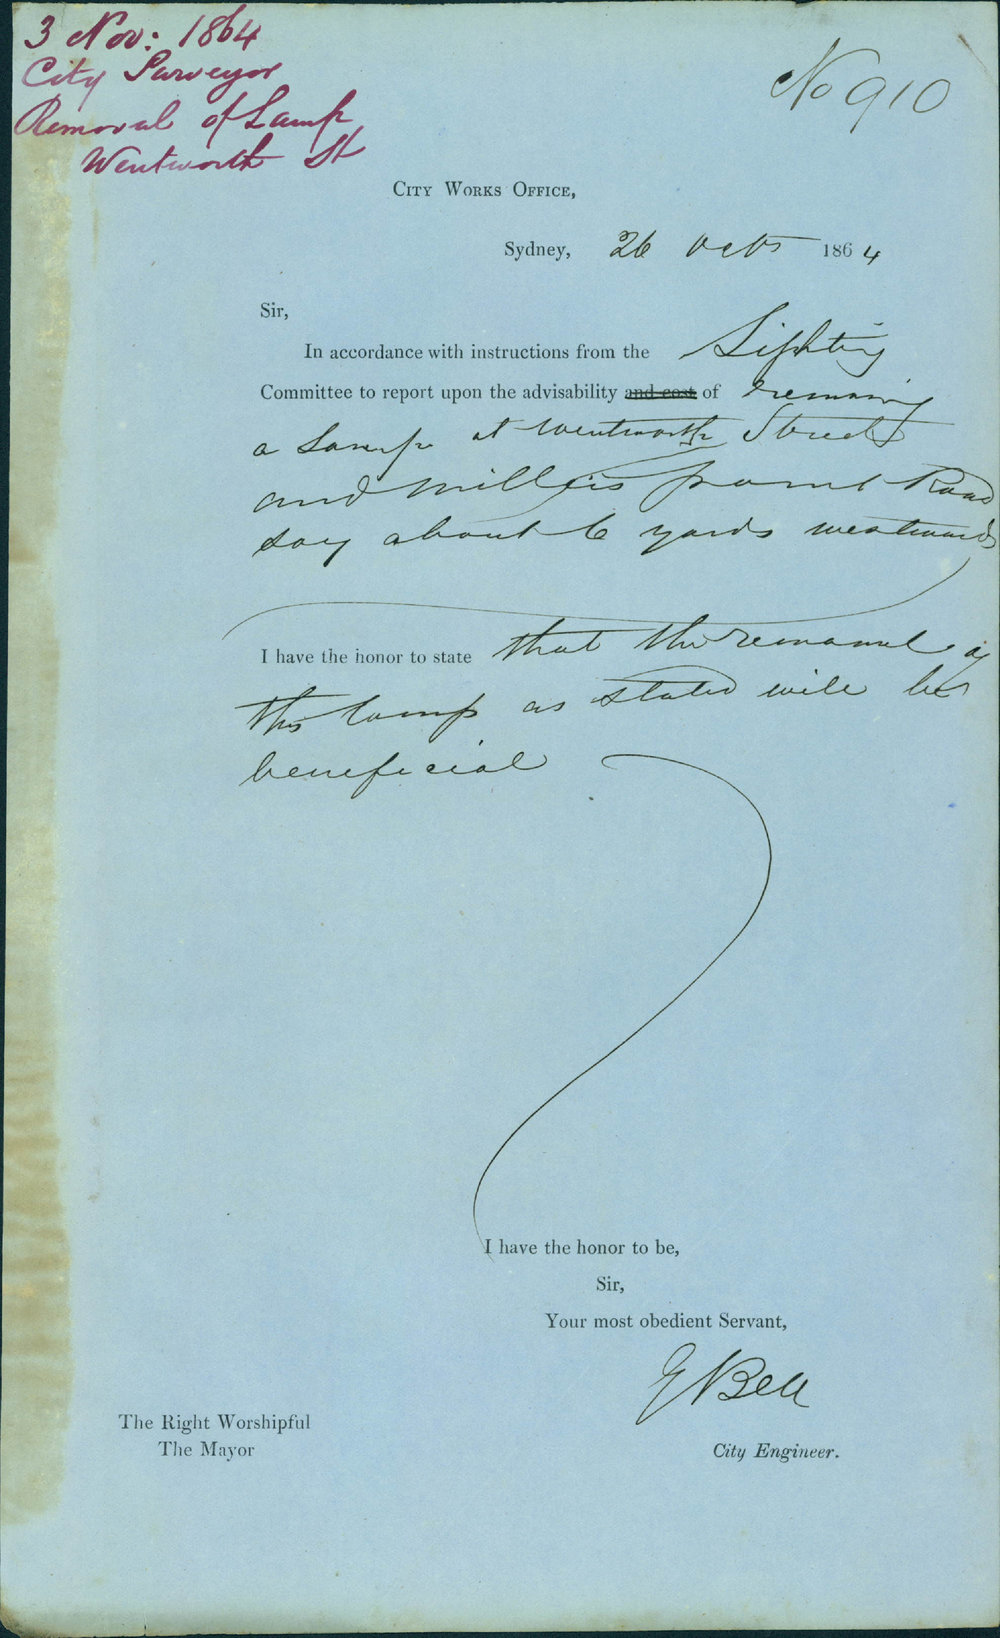 3 Nov: 1864
City Surveyor
Removal of Lamp
Wentworth St
No 910
City Works Office,
Sydney, 26 Octr 1864
Sir,
In accordance with instructions from the Lighting
Committee to report upon the advisability and cost of removing
a Lamp at Wentworth Street
and Millers point Road
say about 6 yards westwards
I have the honor to state that the removal of
this lamp as stated will be
beneficial
I have the honor to be,
Sir,
Your most obedient Servant,
E Bell
City Engineer.
The Right Worshipful
The Mayor